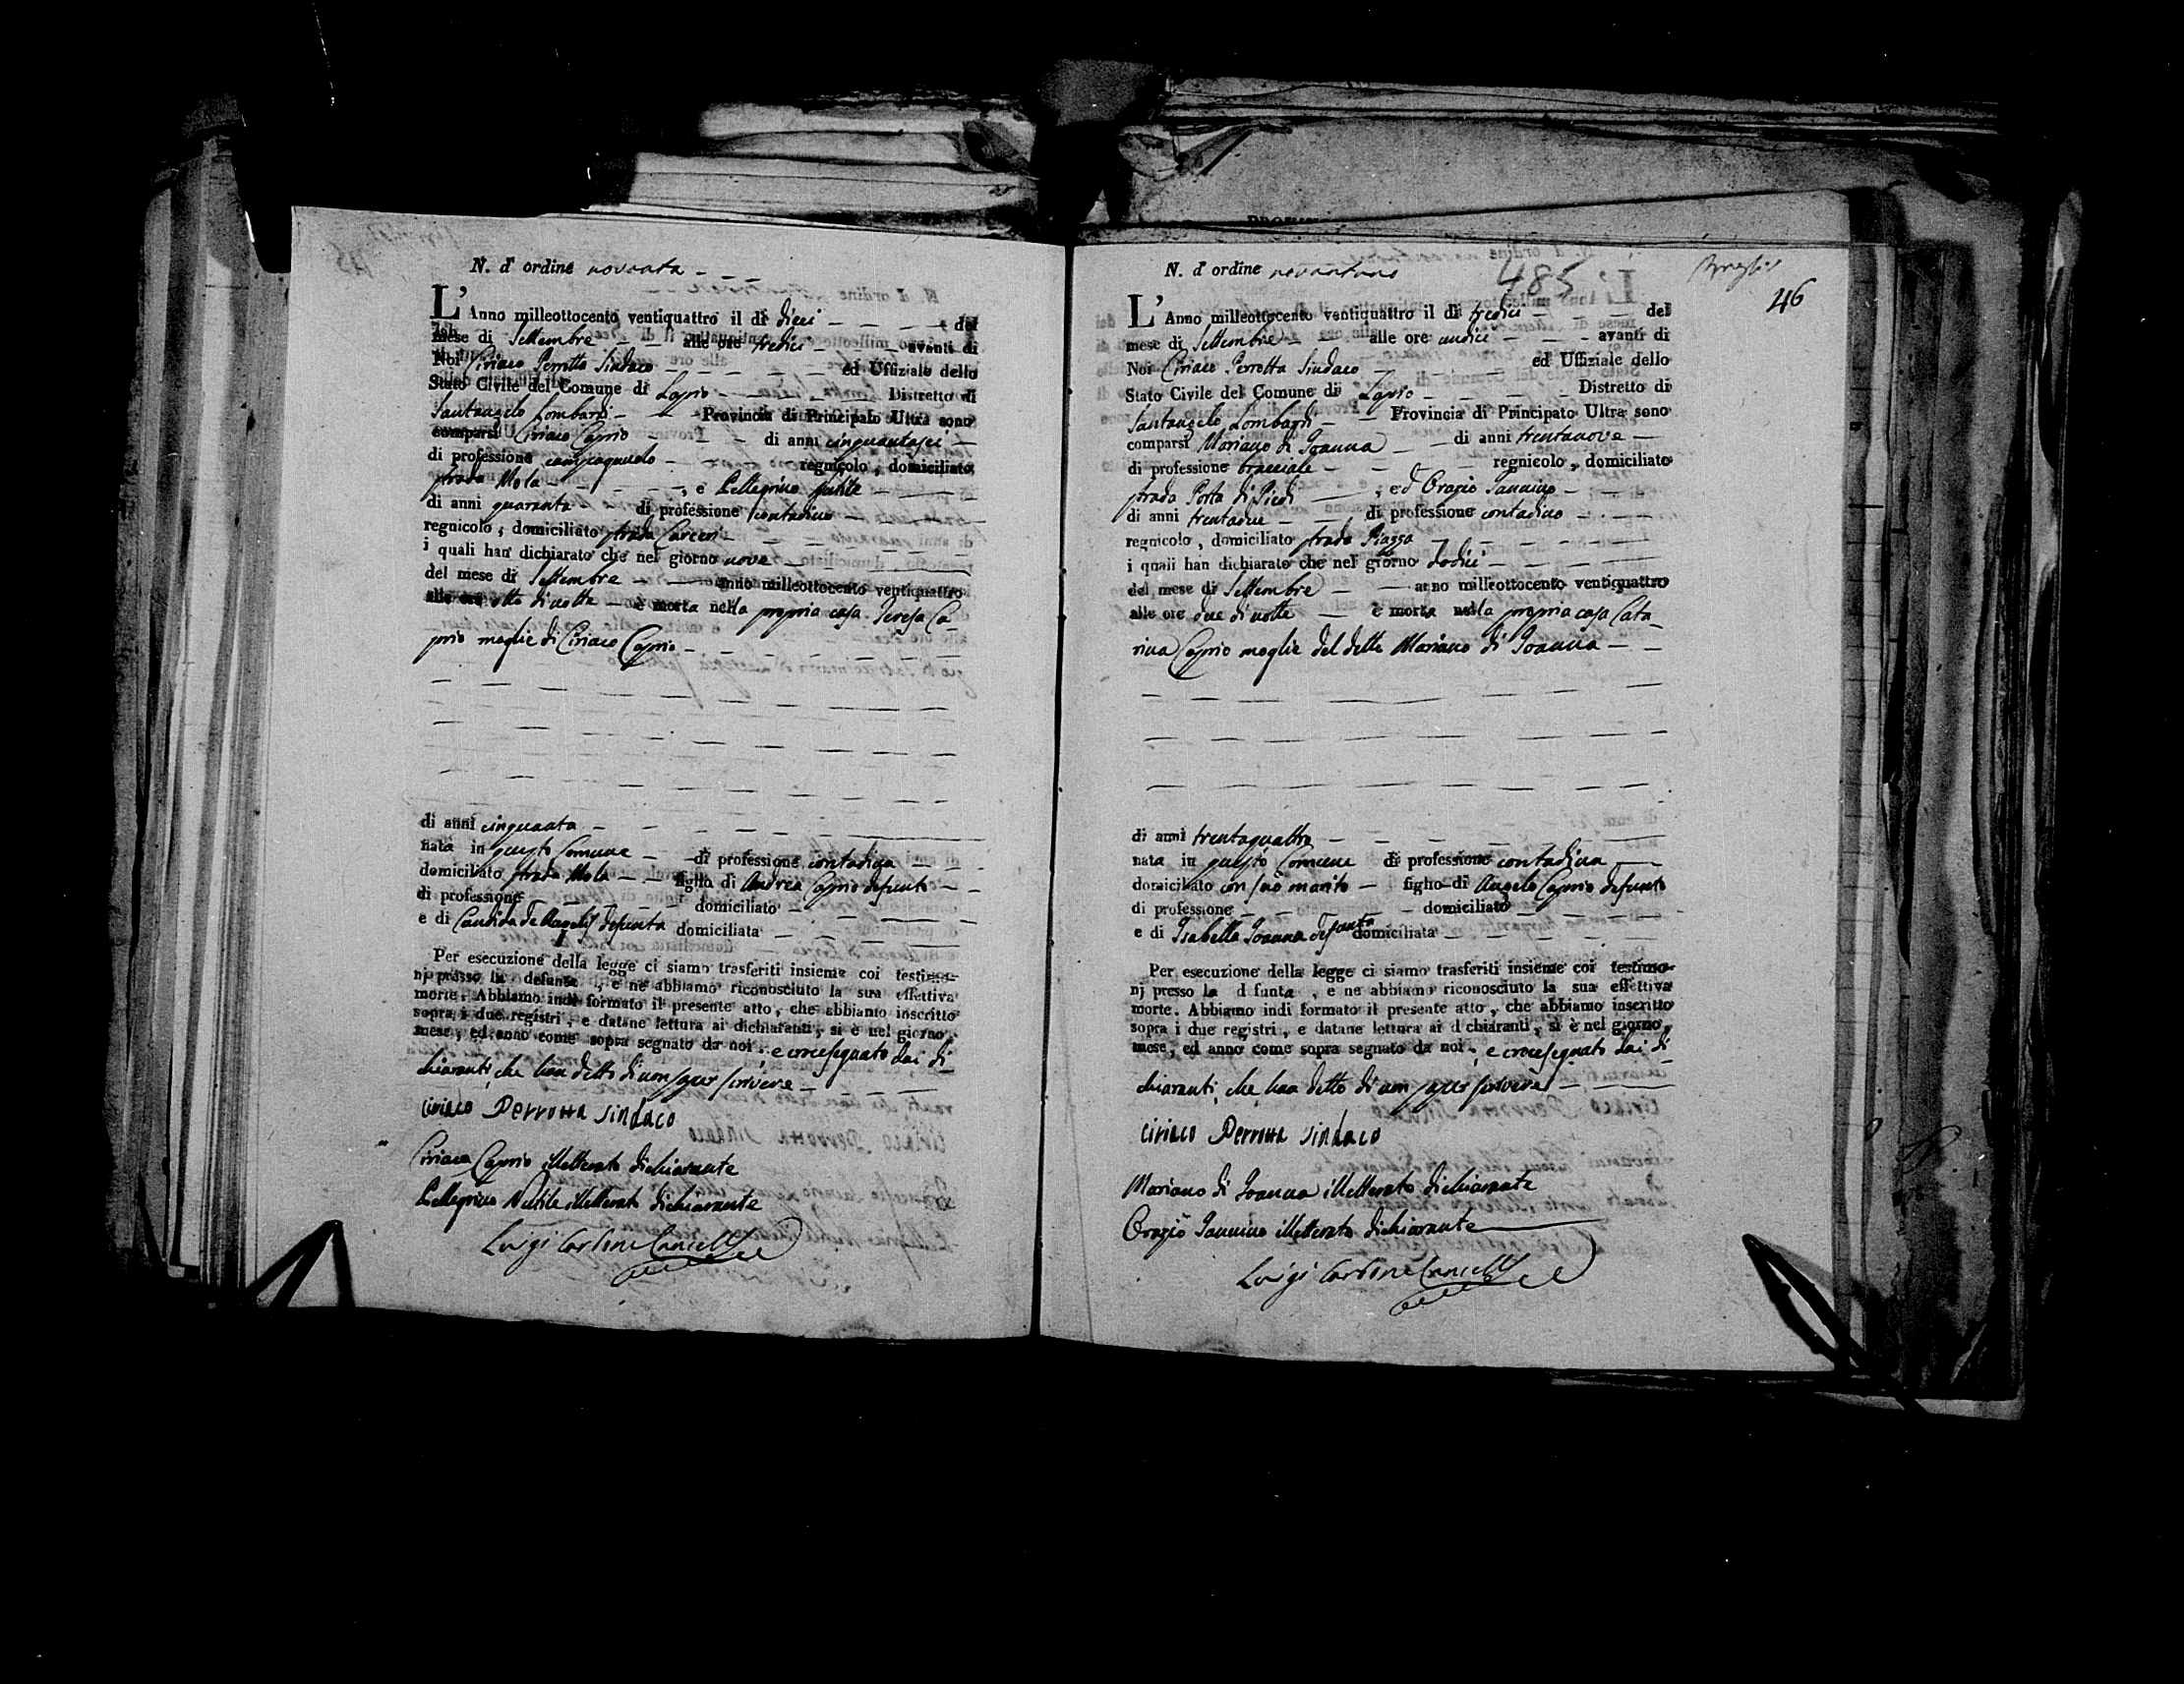 N. d' ordine novanta
L' Anno milleottocento ventiquattro il dì dieci del
mese di Settembre alle ore tredici avanti di
Noi Ciriaco Perrotta Sindaco ed Uffiziale dello
Stato Civile del Comune di Lapio Distretto di
Santangelo Lombardi Provincia di Principato Ultra sono
comparsi Ciriaco Caprio di anni cinquantasei
di professione regnicolo, domiciliato
strada Mola, e Pellegrino
di anni quaranta di professione contadino
regnicolo, domiciliato strada Carceri
i quali han dichiarato che nel giorno nove
del mese di Settembre anno milleottocento ventiquattro
alle ore otto di notte è morta nella propria casa Teresa Ca-
prio moglie di Ciriaco Caprio
di anni cinquanta
nata in questo Comune di professione contadina
domiciliato strada Mola figlia di Andrea Caprio defunto
di professione domiciliato
e di Candida de Angelis defunta domiciliata
Per esecuzione della legge ci siamo trasferiti insieme coi testimo-
nj presso la defunta, e ne abbiamo riconosciuto la sua effettiva
morte. Abbiamo indi formato il presente atto, che abbiamo inscritto
sopra i due registri, e datane lettura ai dichiaranti, si è nel giorno,
mese, ed anno come sopra segnato da noi, e crocesegnato dai di-
chiaranti, che han detto di non saper scrivere
Ciriaco Perrotta Sindaco
Ciriaco Caprio illetterato dichiarante
Pellegrino illetterato dichiarante
Luigi Carbone Cancell
N. d' ordine novantuno
485
46
L' Anno milleottocento ventiquattro il dì tredici del
mese di Settembre alle ore undici avanti di
Noi Ciriaco Perrotta Sindaco ed Uffiziale dello
Stato Civile del Comune di Lapio Distretto di
Santangelo Lombardi Provincia di Principato Ultra sono
comparsi Mariano di Joanna di anni trentanove
di professione bracciale regnicolo, domiciliato
strada Porta di Piedi, ed Orazio Iannino
di anni trentadue di professione contadino
regnicolo, domiciliato strada Piazza
i quali han dichiarato che nel giorno dodici
del mese di Settembre anno milleottocento ventiquattro
alle ore due di notte è morta nella propria casa Cata-
rina Caprio moglie del detto Mariano di Joanna
di anni trentaquattro
nata in questo Comune di professione contadina
domiciliato con suo marito figlio di Angelo Caprio defunto
di professione domiciliato
e di Isabella Joanna defunta domiciliata
Per esecuzione della legge ci siamo trasferiti insieme coi testimo-
nj presso la d funta, e ne abbiamo riconosciuto la sua effettiva
morte. Abbiamo indi formato il presente atto, che abbiamo inscritto
sopra i due registri, e datane lettura ai d chiaranti, si è nel giorno,
mese, ed anno come sopra segnato da noi, e crocesegnato dai di-
chiaranti, che han detto di non saper scrivere
Ciriaco Perrotta Sindaco
Mariano di Joanna illetterato dichiarante
Orazio Iannino illetterato dichiarante
Luigi Carbone Cancell